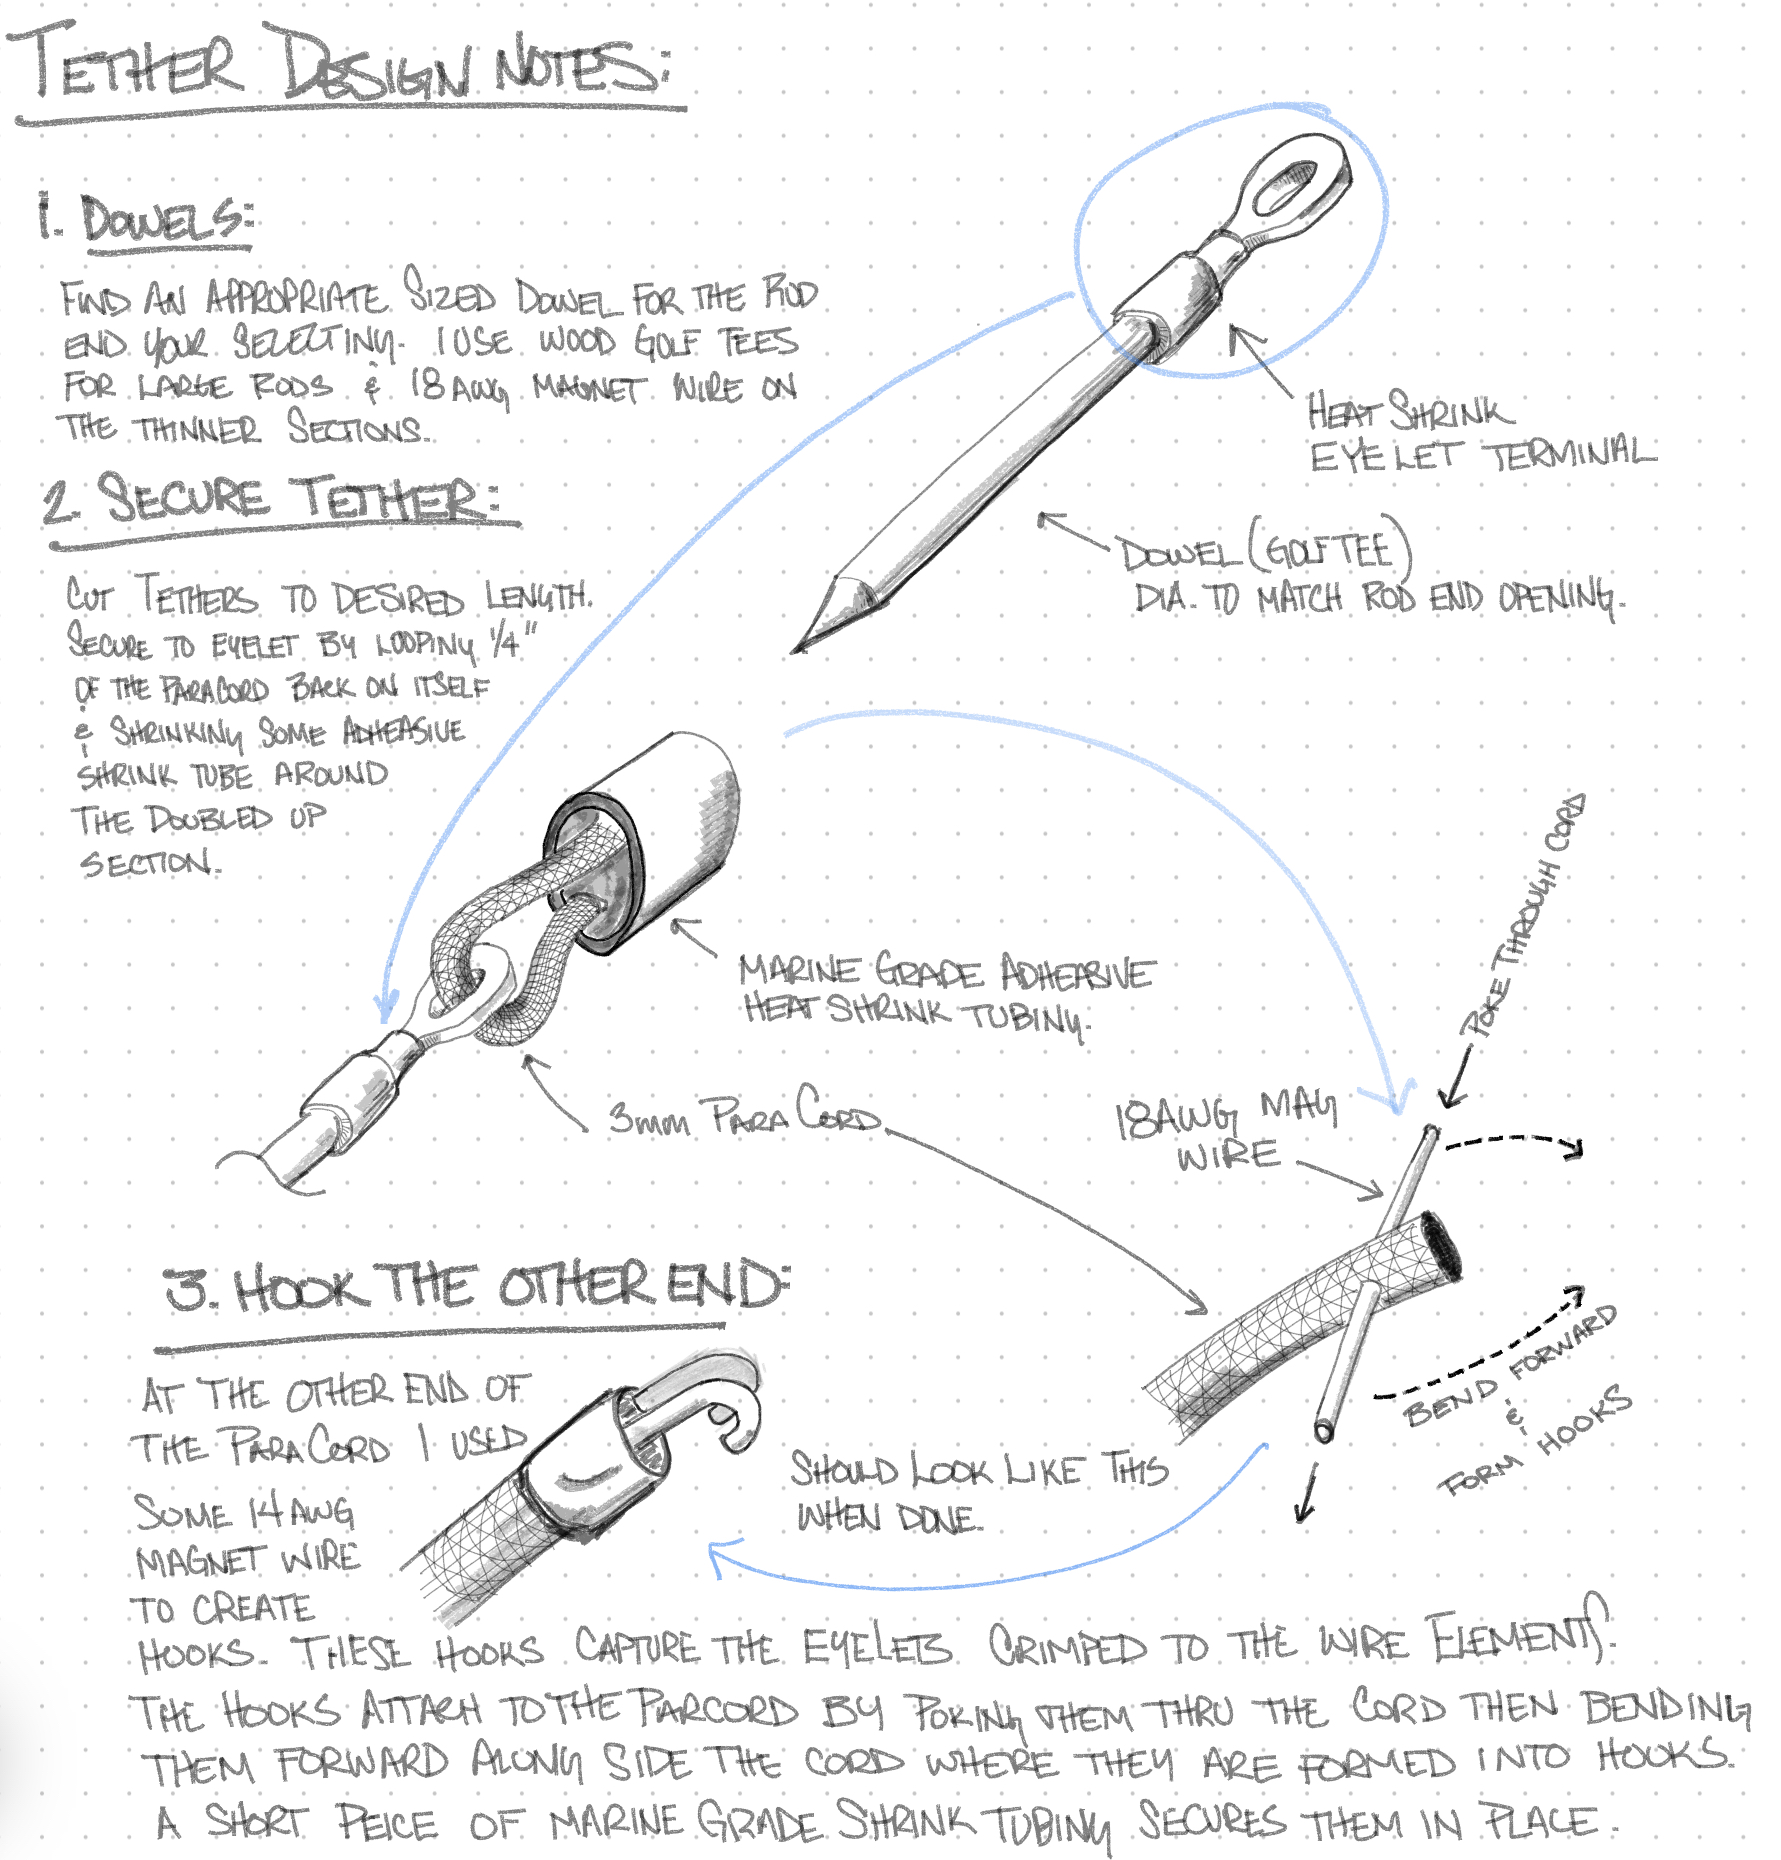 TETHER DESIGN NOTES:
1. DOWELS:
FIND AN APPROPRIATE SIZED DOWEL FOR THE ROD
END YOUR SELECTING. I USE WOOD GOLF TEES
FOR LARGE RODS & 18 AWG MAGNET WIRE ON
THE THINNER SECTIONS.
HEAT SHRINK
EYELET TERMINAL
DOWEL (GOLF TEE)
DIA. TO MATCH ROD END OPENING.
2. SECURE TETHER:
CUT TETHERS TO DESIRED LENGTH.
SECURE TO EYELET BY LOOPING 1/4"
OF THE PARACORD BACK ON ITSELF
& SHRINKING SOME ADHEASIVE
SHRINK TUBE AROUND
THE DOUBLED UP
SECTION.
MARINE GRADE ADHEASIVE
HEAT SHRINK TUBING.
3mm PARA CORD
POKE THROUGH CORD
18AWG MAG
WIRE
BEND FORWARD
&
FORM HOOKS
3. HOOK THE OTHER END:
AT THE OTHER END OF
THE PARA CORD I USED
SOME 14 AWG
MAGNET WIRE
TO CREATE
HOOKS. THESE HOOKS CAPTURE THE EYELETS CRIMPED TO THE WIRE ELEMENTS.
THE HOOKS ATTACH TO THE PARCORD BY POKING THEM THRU THE CORD THEN BENDING
THEM FORWARD ALONG SIDE THE CORD WHERE THEY ARE FORMED INTO HOOKS.
A SHORT PEICE OF MARINE GRADE SHRINK TUBING SECURES THEM IN PLACE.
SHOULD LOOK LIKE THIS
WHEN DONE.